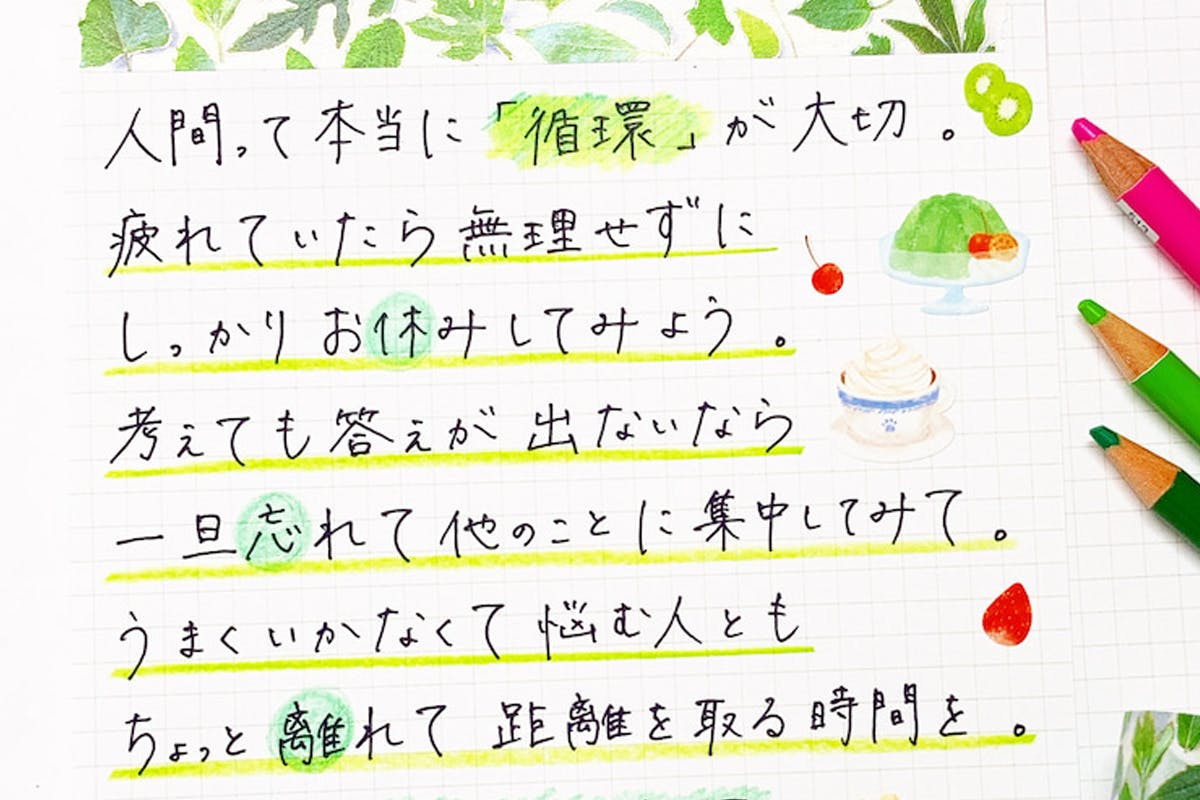 人間って本当に「循環」が大切。
疲れていたら無理せずに
しっかりお休みしてみよう。
考えても答えが出ないなら
一旦忘れて他のことに集中してみて。
うまくいかなくて悩む人とも
ちょっと離れて距離を取る時間を。